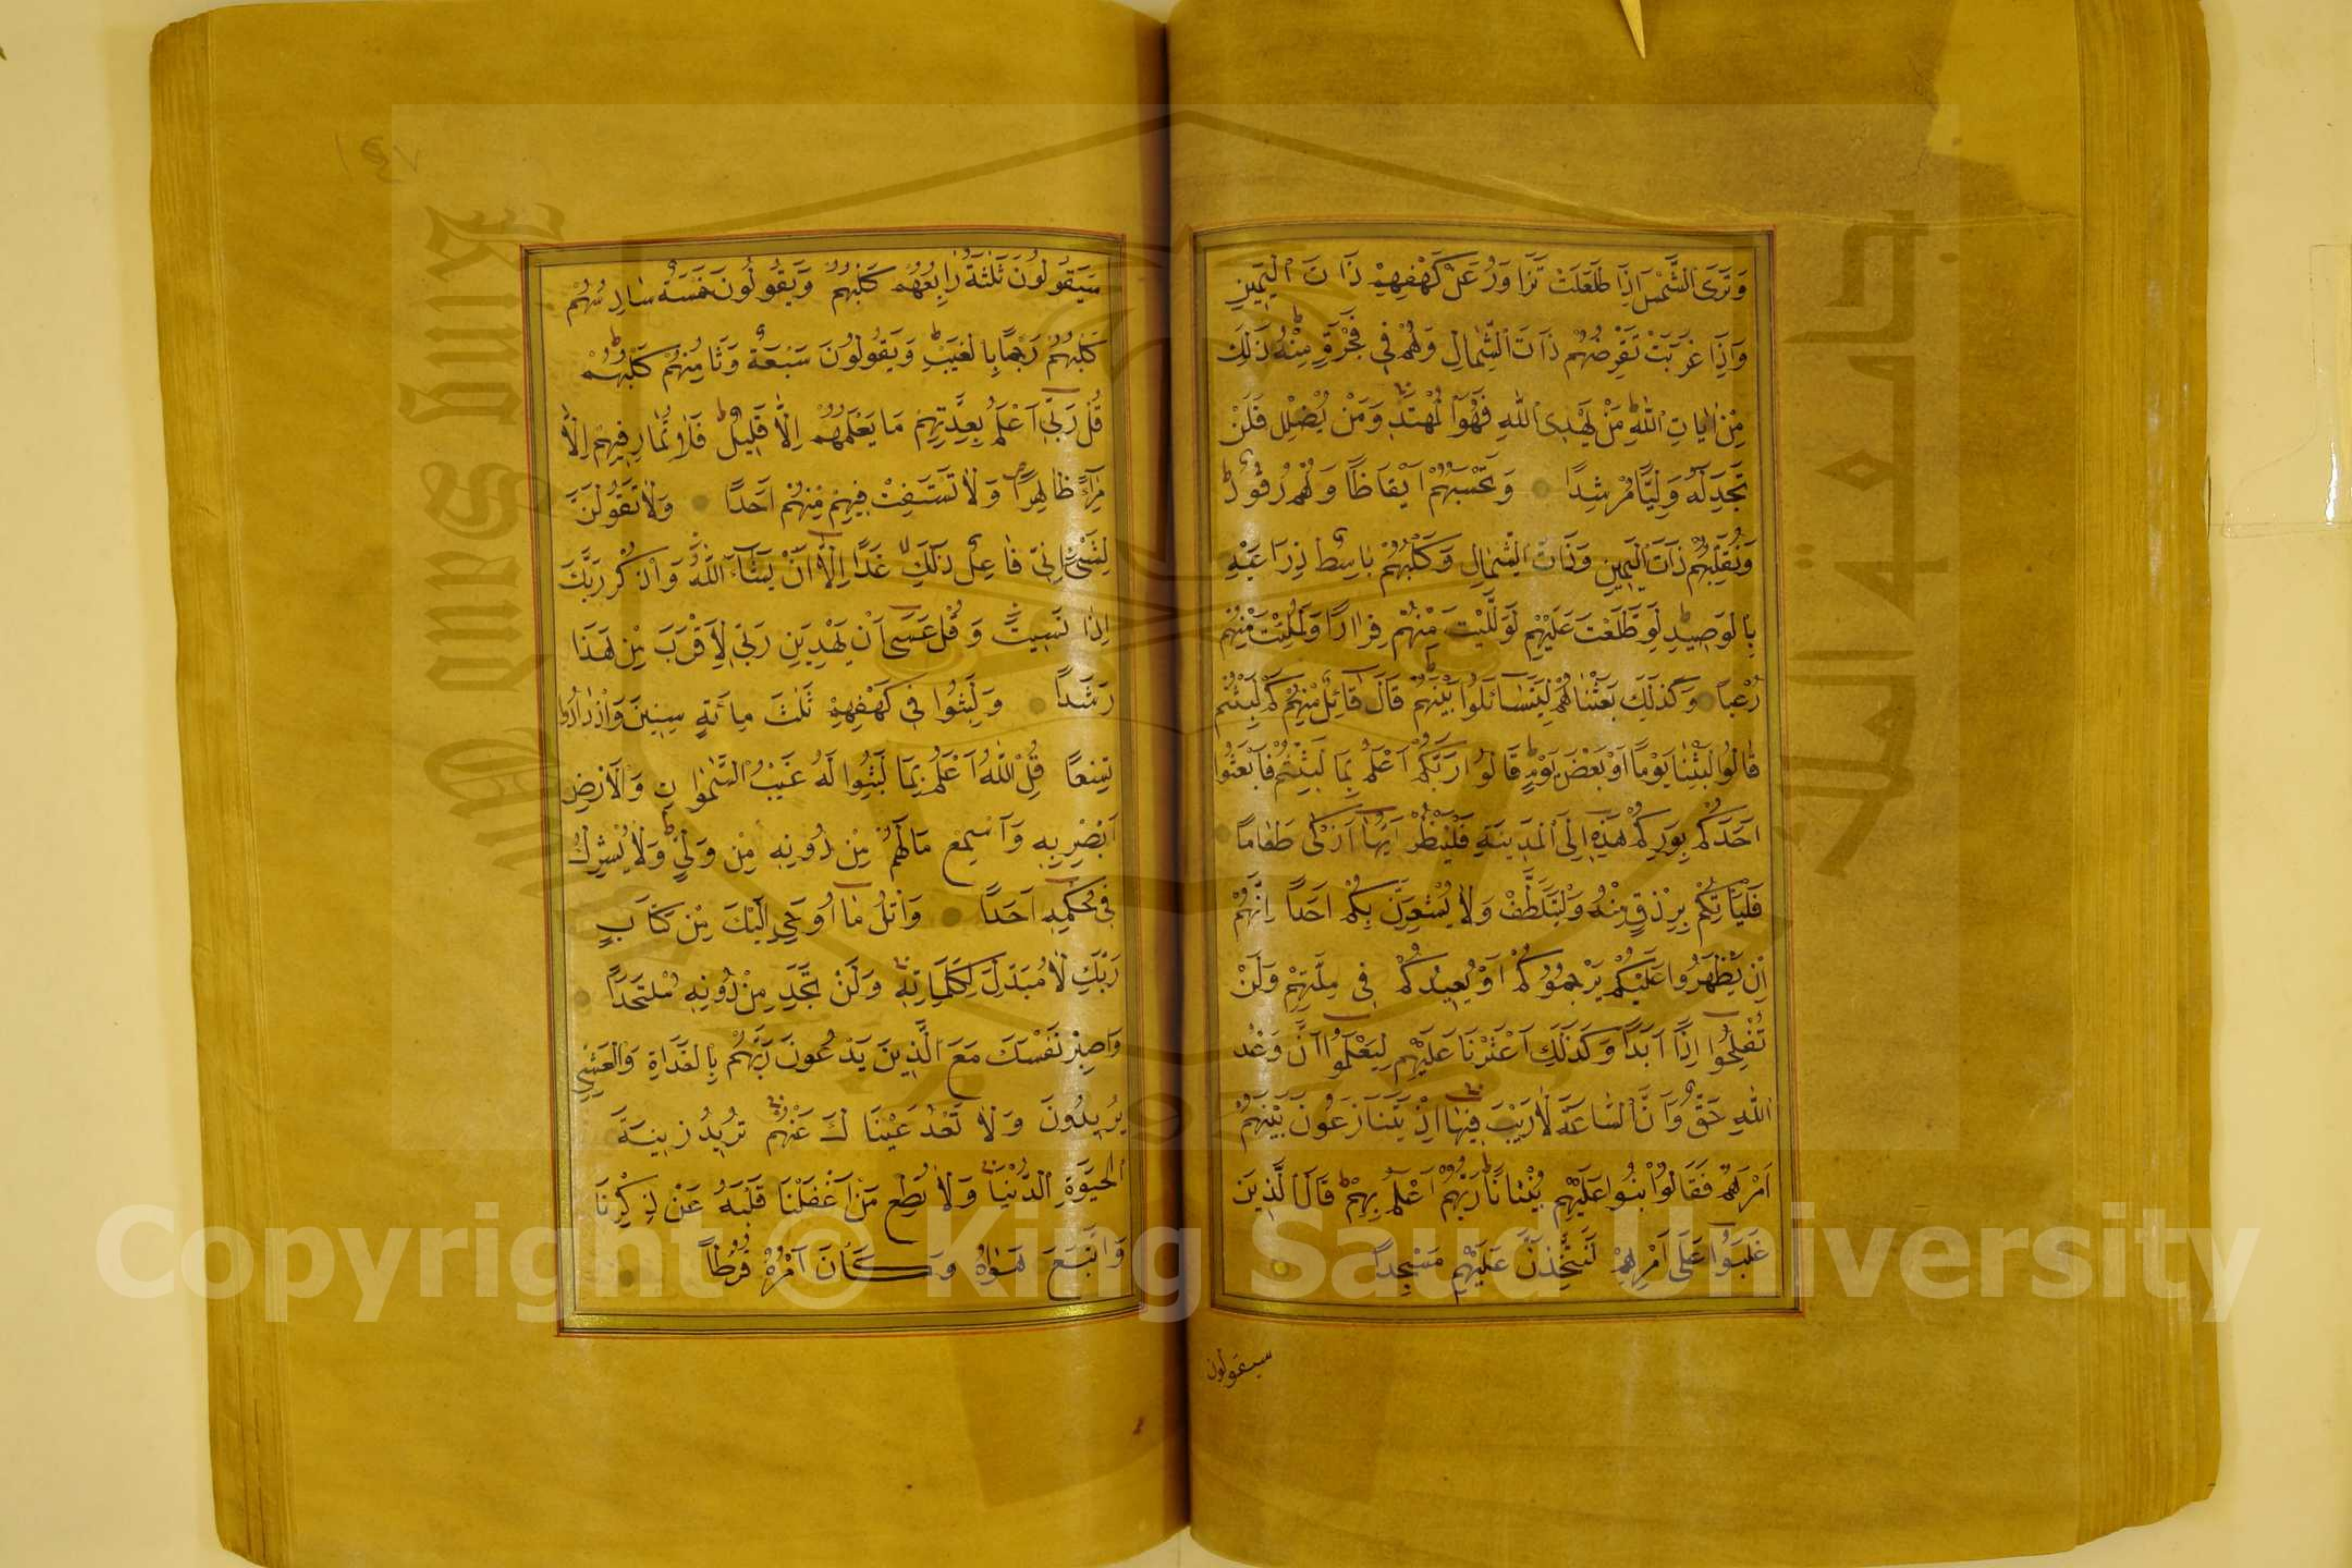 وَتَرَى الشَّمْسَ اِذَا طَلَعَتْ تَزَاوَرُ عَنْ كَهْفِهِمْ ذَاتَ الْيَمِينِ
وَاِذَا غَرَبَتْ تَقْرِضُهُمْ ذَاتَ الشِّمَالِ وَهُمْ فِي فَجْوَةٍ مِنْهُ ذَلِكَ
مِنْ اٰيَاتِ اللّٰهِ مَنْ يَهْدِى اللّٰهُ فَهُوَ الْمُهْتَدِ وَمَنْ يُضْلِلْ فَلَنْ
تَجِدَ لَهُ وَلِيًّا مُرْشِدًا وَتَحْسَبُهُمْ اَيْقَاظًا وَهُمْ رُقُودٌ
وَنُقَلِّبُهُمْ ذَاتَ الْيَمِينِ وَذَاتَ الشِّمَالِ وَكَلْبُهُمْ بَاسِطٌ ذِرَاعَيْهِ
بِالْوَصِيدِ لَوِ اطَّلَعْتَ عَلَيْهِمْ لَوَلَّيْتَ مِنْهُمْ فِرَارًا وَلَمُلِئْتَ مِنْهُمْ
رُعْبًا وَكَذَلِكَ بَعَثْنَاهُمْ لِيَتَسَائَلُوا بَيْنَهُمْ قَالَ قَائِلٌ مِنْهُمْ كَمْ لَبِثْتُمْ
قَالُوا لَبِثْنَا يَوْمًا اَوْ بَعْضَ يَوْمٍ قَالُوا رَبُّكُمْ اَعْلَمُ بِمَا لَبِثْتُمْ فَابْعَثُوا
اَحَدَكُمْ بِوَرِقِكُمْ هَذِهِ اِلَى الْمَدِينَةِ فَلْيَنْظُرْ اَيُّهَا اَزْكَى طَعَامًا
فَلْيَأْتِكُمْ بِرِزْقٍ مِنْهُ وَلْيَتَلَطَّفْ وَلَا يُشْعِرَنَّ بِكُمْ اَحَدًا اِنَّهُمْ
اِنْ يَظْهَرُوا عَلَيْكُمْ يَرْجُمُوكُمْ اَوْ يُعِيدُوكُمْ فِي مِلَّتِهِمْ وَلَنْ
تُفْلِحُوا اِذًا اَبَدًا وَكَذَلِكَ اَعْثَرْنَا عَلَيْهِمْ لِيَعْلَمُوا اَنَّ وَعْدَ
اللّٰهِ حَقٌّ وَاَنَّ السَّاعَةَ لَا رَيْبَ فِيهَا اِذْ يَتَنَازَعُونَ بَيْنَهُمْ
اَمْرَهُمْ فَقَالُوا ابْنُوا عَلَيْهِمْ بُنْيَانًا رَبُّهُمْ اَعْلَمُ بِهِمْ قَالَ الَّذِينَ
غَلَبُوا عَلَى اَمْرِهِمْ لَنَتَّخِذَنَّ عَلَيْهِمْ مَسْجِدًا
سيقولون
١٤٧
سَيَقُولُونَ ثَلٰثَةٌ رَابِعُهُمْ كَلْبُهُمْ وَيَقُولُونَ خَمْسَةٌ سَادِسُهُمْ
كَلْبُهُمْ رَجْمًا بِالْغَيْبِ وَيَقُولُونَ سَبْعَةٌ وَثَامِنُهُمْ كَلْبُهُمْ
قُلْ رَبِّى اَعْلَمُ بِعِدَّتِهِمْ مَا يَعْلَمُهُمْ اِلَّا قَلِيلٌ فَلَا تُمَارِ فِيهِمْ اِلَّا
مِرَاءً ظَاهِرًا وَلَا تَسْتَفْتِ فِيهِمْ مِنْهُمْ اَحَدًا وَلَا تَقُولَنَّ
لِشَىْءٍ اِنِّى فَاعِلٌ ذَلِكَ غَدًا اِلَّا اَنْ يَشَاءَ اللّٰهُ وَاذْكُرْ رَبَّكَ
اِذَا نَسِيتَ وَقُلْ عَسَى اَنْ يَهْدِيَنِ رَبِّى لِاَقْرَبَ مِنْ هَذَا
رَشَدًا وَلَبِثُوا فِى كَهْفِهِمْ ثَلٰثَ مِائَةٍ سِنِينَ وَازْدَادُوا
تِسْعًا قُلِ اللّٰهُ اَعْلَمُ بِمَا لَبِثُوا لَهُ غَيْبُ السَّمٰوَاتِ وَالْاَرْضِ
اَبْصِرْ بِهِ وَاَسْمِعْ مَا لَهُمْ مِنْ دُونِهِ مِنْ وَلِيٍّ وَلَا يُشْرِكُ
فِى حُكْمِهِ اَحَدًا وَاتْلُ مَا اُوحِيَ اِلَيْكَ مِنْ كِتَابِ
رَبِّكَ لَا مُبَدِّلَ لِكَلِمَاتِهِ وَلَنْ تَجِدَ مِنْ دُونِهِ مُلْتَحَدًا
وَاصْبِرْ نَفْسَكَ مَعَ الَّذِينَ يَدْعُونَ رَبَّهُمْ بِالْغَدَاةِ وَالْعَشِيِّ
يُرِيدُونَ وَلَا تَعْدُ عَيْنَاكَ عَنْهُمْ تُرِيدُ زِينَةَ
الْحَيٰوةِ الدُّنْيَا وَلَا تُطِعْ مَنْ اَغْفَلْنَا قَلْبَهُ عَنْ ذِكْرِنَا
وَاتَّبَعَ هَوٰيهُ وَكَانَ اَمْرُهُ فُرُطًا
King Saud University
جامعة الملك سعود
1957
Copyright © King Saud University